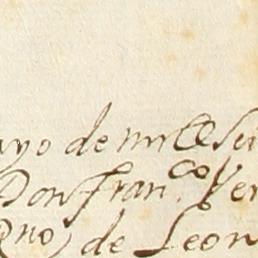 ayo de mill Se
Don fran.co Ver
no) de Leon